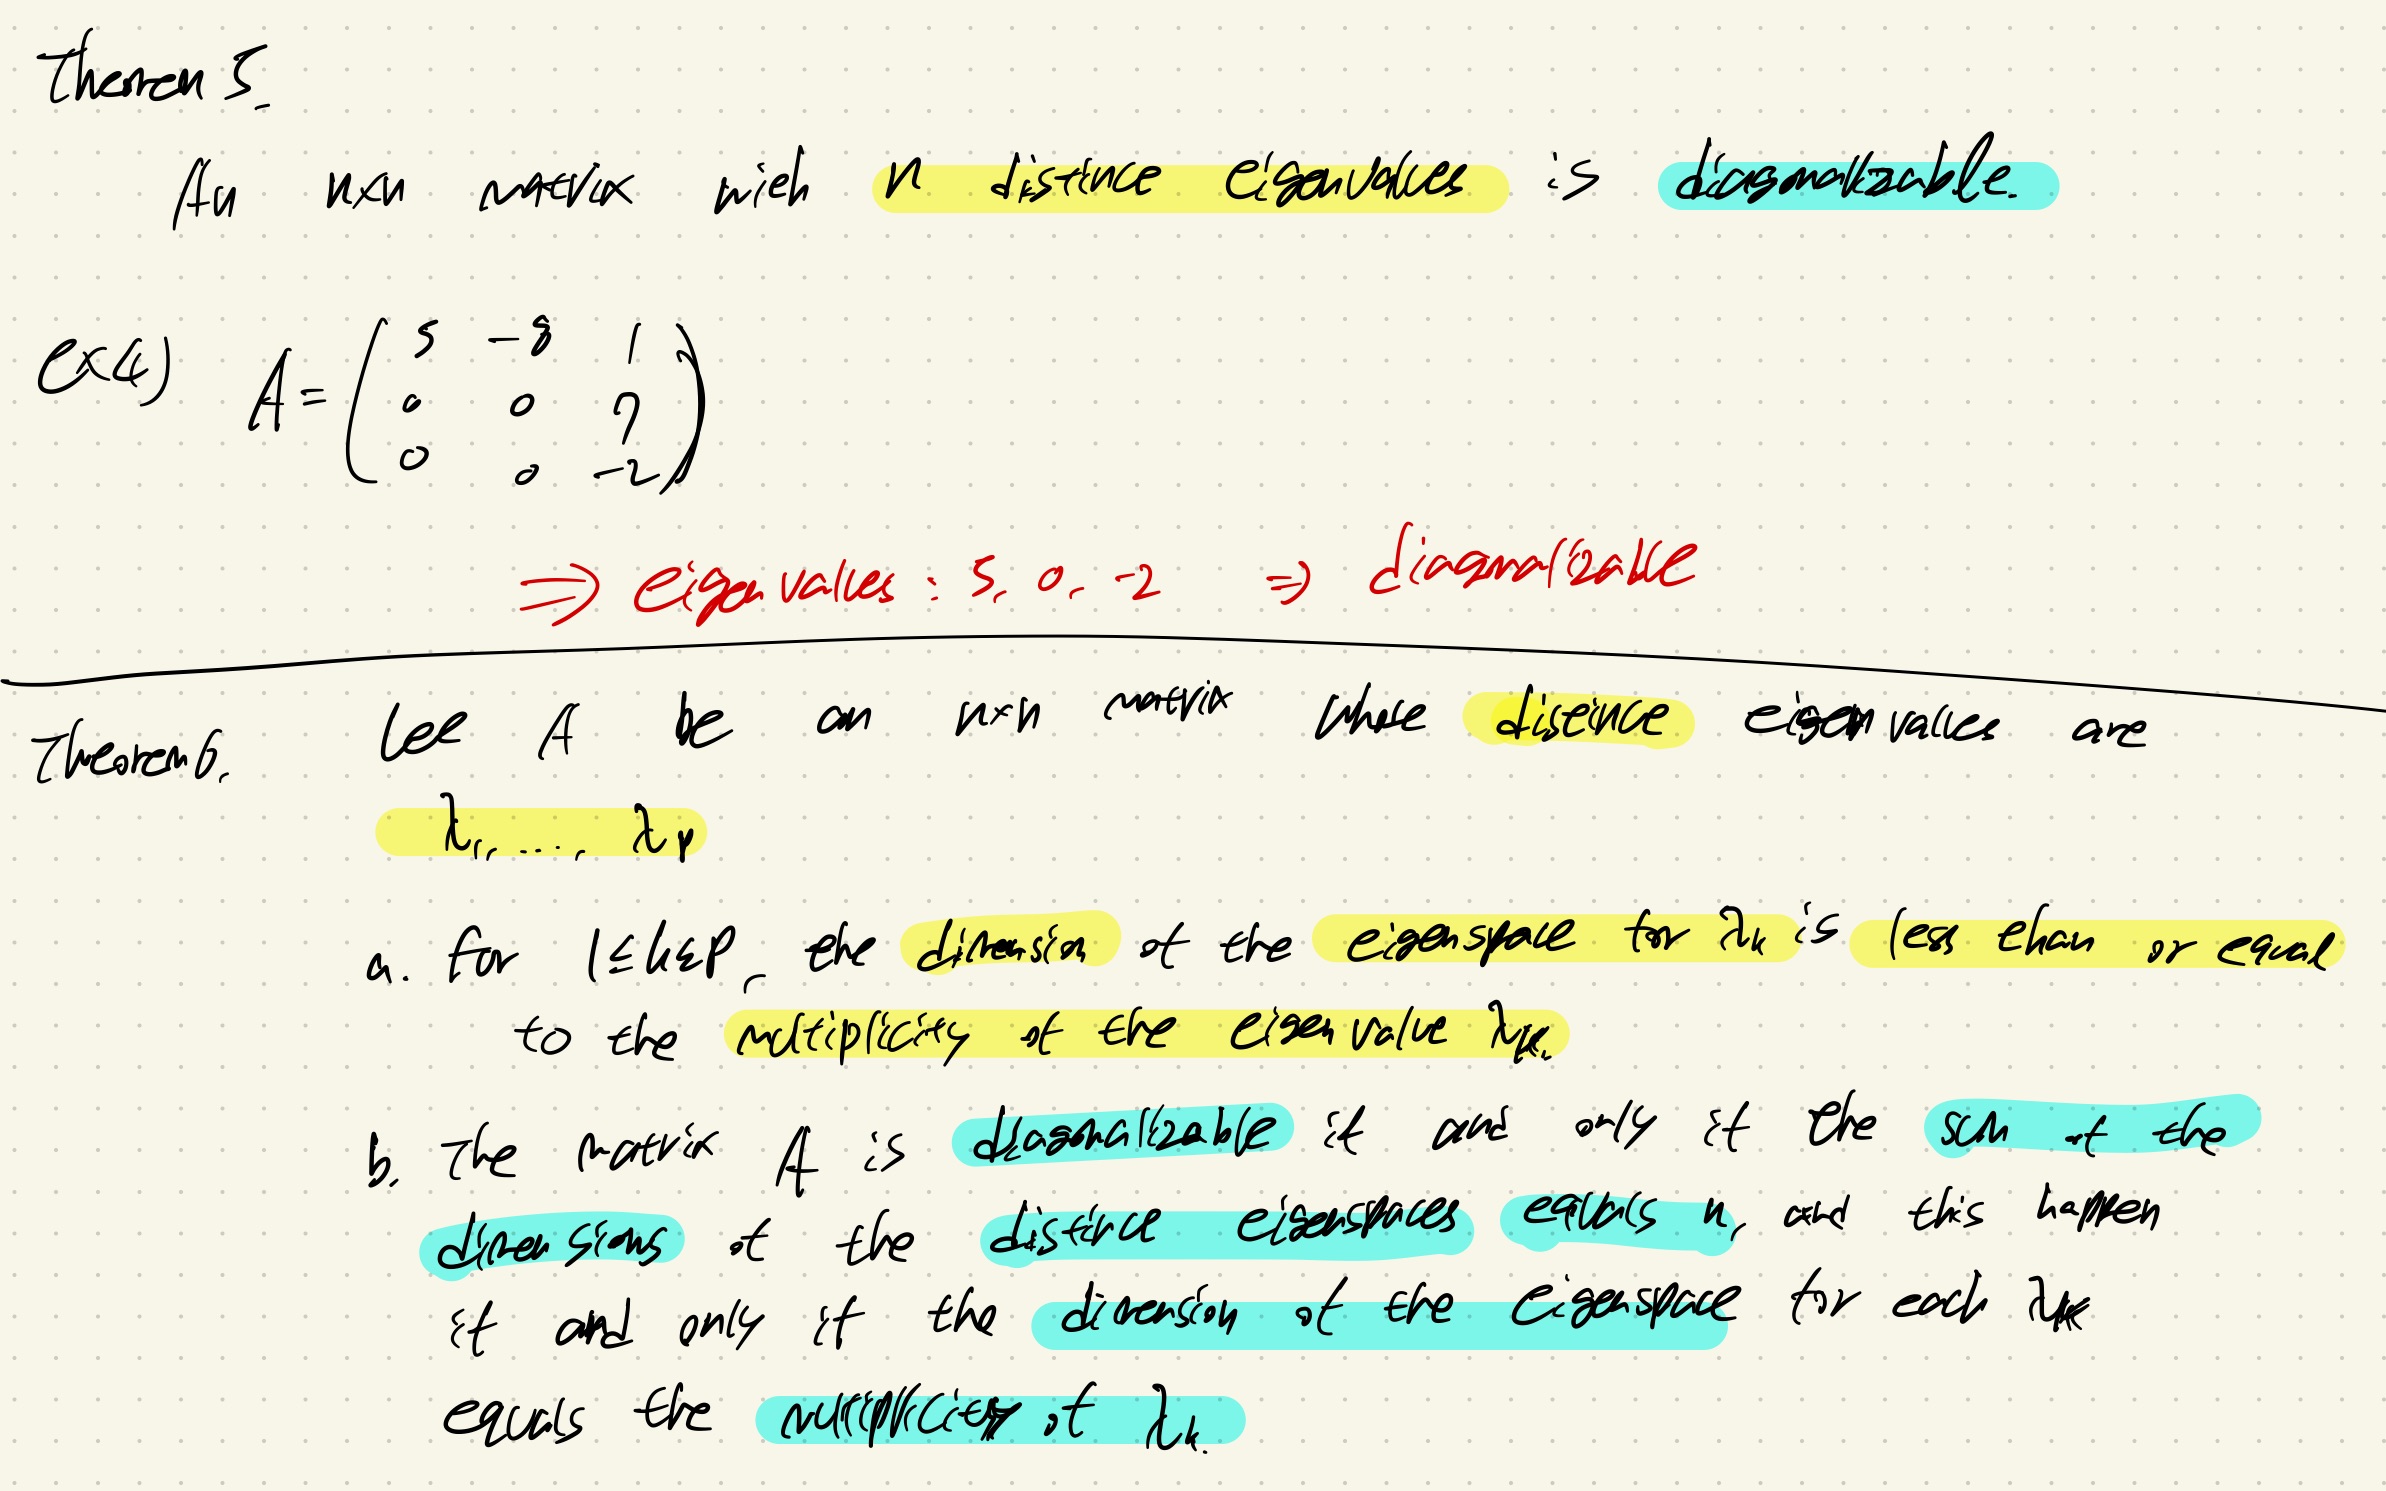 Theorem 5.
An n×n matrix with n distinct eigenvalues is diagonalizable.
ex4) A = ( 5 -8 1
0 0 7
0 0 -2 )
⇒ eigenvalues : 5, 0, -2 ⇒ diagonalizable
Theorem 6. Let A be an n×n matrix whose distinct eigenvalues are
λ₁, ..., λp
a. for 1≤k≤p, the dimension of the eigenspace for λk is less than or equal
to the multiplicity of the eigenvalue λk.
b. The matrix A is diagonalizable if and only if the sum of the
dimensions of the distinct eigenspaces equals n, and this happen
if and only if the dimension of the eigenspace for each λk
equals the multiplicity of λk.